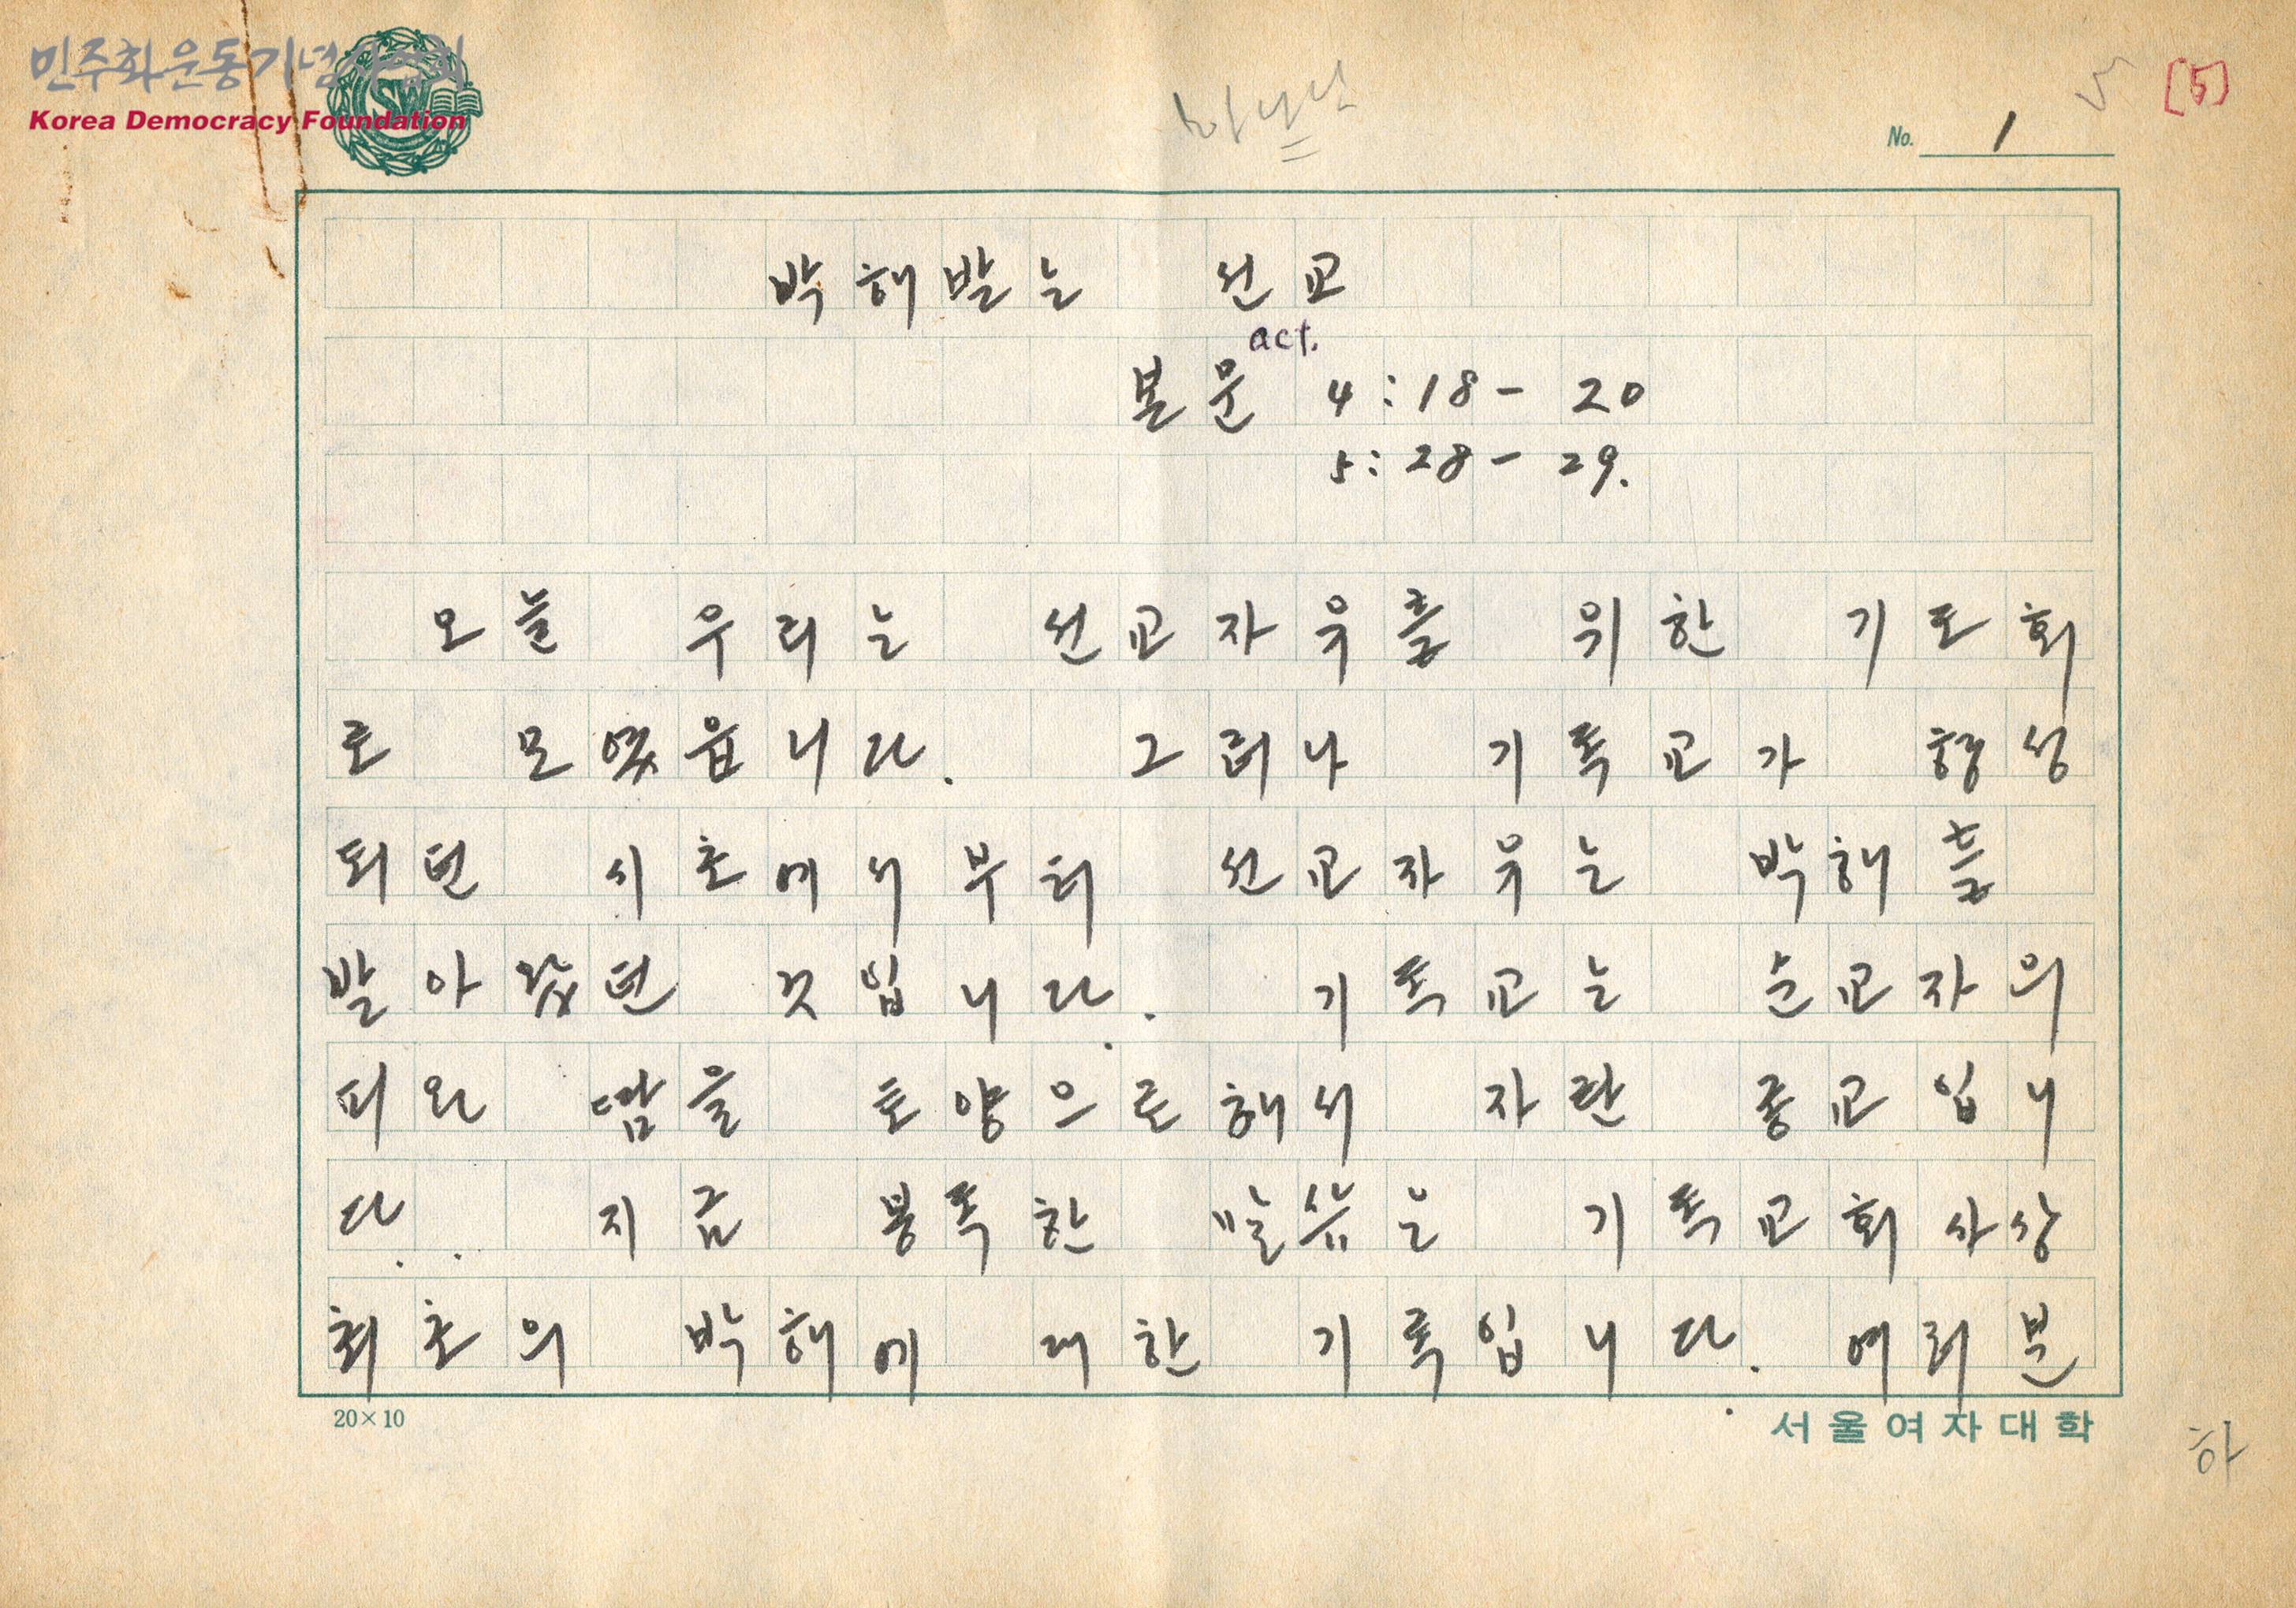 민주화운동기념사업회
Korea Democracy Foundation
5 [5]
No. 1
박해받는 선교
act.
본문 4:18- 20
5:28- 29.
오늘 우리는 선교자유를 위한 기도회
로 모였읍니다. 그러나 기독교가 형성
되던 시초에서부터 선교자유는 박해를
받아왔던 것입니다. 기독교는 순교자의
피와 땀을 토양으로해서 자란 종교입니
다. 지금 봉독한 말씀은 기독교회사상
최초의 박해에 대한 기록입니다. 여러분
20×10
서울여자대학
하